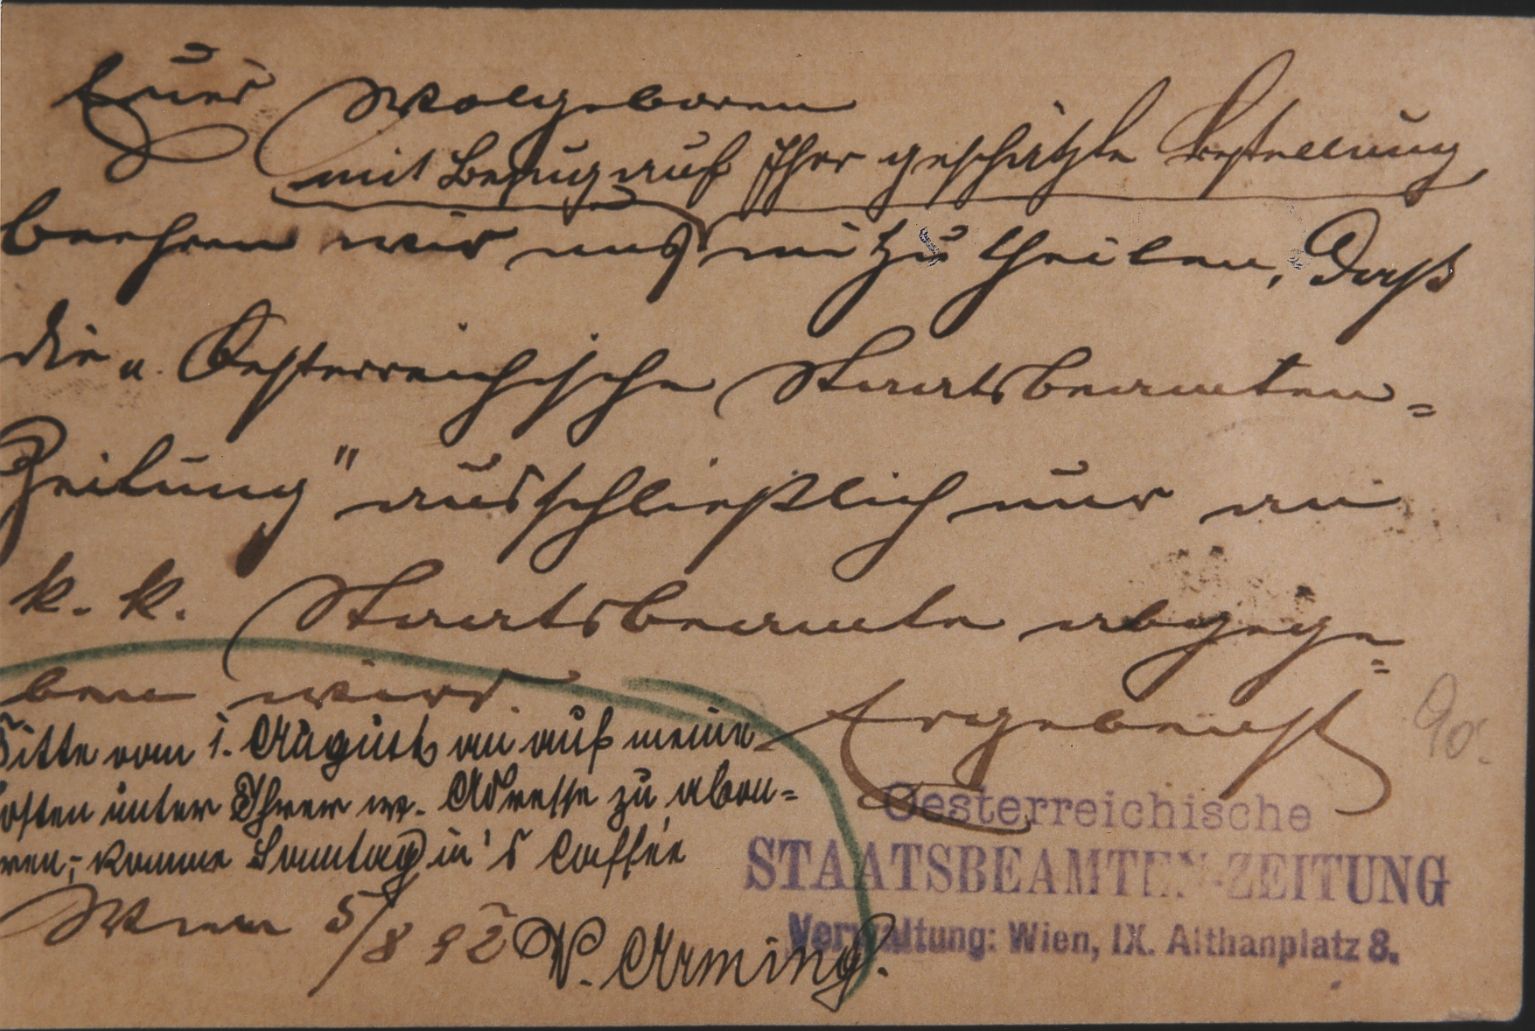 Euer Wolgeboren
mit Bezug auf Ihre geschätzte Bestellung
beehren wir uns mitzutheilen, daß
die „Oesterreichische Staatsbeamten=
Zeitung" ausschließlich nur an
k. k. Staatsbeamte abgege=
ben wird.
Ergebenst
90.
Bitte vom 1. August an auf meine
Kosten unter Ihrer w. Adresse zu abon=
ren; komme Sonntag in's Caffée
Wien 5/8 92 W. Arming.
Oesterreichische
STAATSBEAMTEN-ZEITUNG
Verwaltung: Wien, IX. Althanplatz 8.